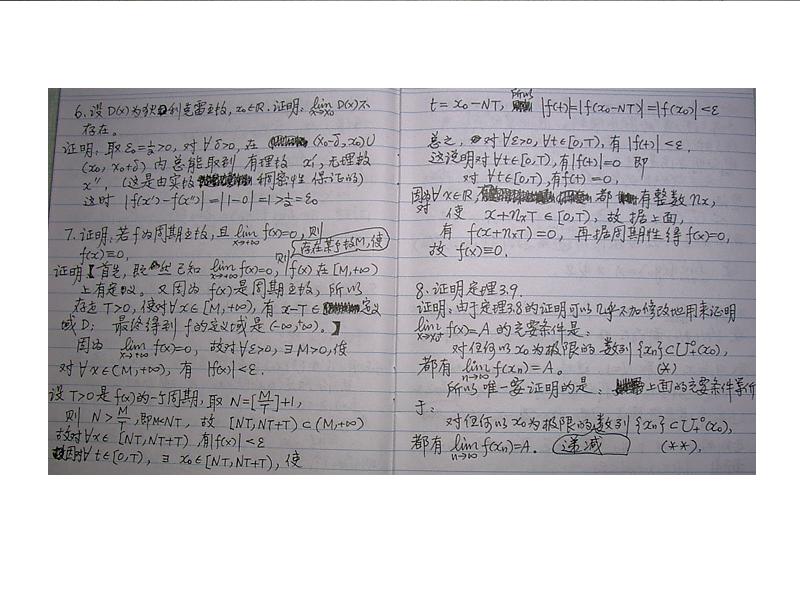 6. 设D(x)为狄利克雷函数, x₀∈R. 证明: lim_{x→x₀} D(x)不
存在。
证明: 取ε₀=½>0, 对∀δ>0, 在 (x₀-δ, x₀)∪
(x₀, x₀+δ) 内总能取到有理数 x′, 无理数
x″, (这是由实数稠密性保证的)
这时 |f(x′)-f(x″)|=|1-0|=1>½=ε₀
7. 证明: 若f为周期函数, 且 lim_{x→+∞} f(x)=0, 则
f(x)≡0.
则存在某个数M, 使
证明:【首先, 既然已知 lim_{x→+∞} f(x)=0, f(x)在[M,+∞)
上有定义。又因为f(x)是周期函数, 所以
存在T>0, 使对∀x∈[M,+∞), 有 x-T∈定义
域D; 最终得到f的定义域是(-∞,+∞)。】
因为 lim_{x→+∞} f(x)=0, 故对∀ε>0, ∃M>0, 使
对∀x∈(M,+∞), 有 |f(x)|<ε.
设T>0是f(x)的一个周期, 取 N=[M/T]+1,
则 N>M/T, 即M<NT, 故 [NT,NT+T)⊂(M,+∞)
故对∀x∈[NT,NT+T), 有|f(x)|<ε
对∀t∈[0,T), ∃x₀∈[NT,NT+T), 使
t=x₀-NT, 所以 |f(t)|=|f(x₀-NT)|=|f(x₀)|<ε
总之, 对∀ε>0, ∀t∈[0,T), 有|f(t)|<ε.
这说明对∀t∈[0,T), 有|f(t)|=0 即
对∀t∈[0,T), 有f(t)=0.
因为对∀x∈R, 都有整数nₓ,
使 x+nₓT∈[0,T), 故据上面,
有 f(x+nₓT)=0, 再据周期性得f(x)=0,
故 f(x)≡0.
8. 证明定理3.9.
证明: 由于定理3.8的证明可以几乎不加修改地用来证明
lim_{x→x₀⁺} f(x)=A 的充要条件是:
对任何以x₀为极限的数列{xₙ}⊂U₊°(x₀),
都有 lim_{n→∞} f(xₙ)=A. (*)
所以唯一要证明的是: 上面的充要条件等价
于:
对任何以x₀为极限的数列{xₙ}⊂U₊°(x₀),
都有 lim_{n→∞} f(xₙ)=A. 递减 (**).